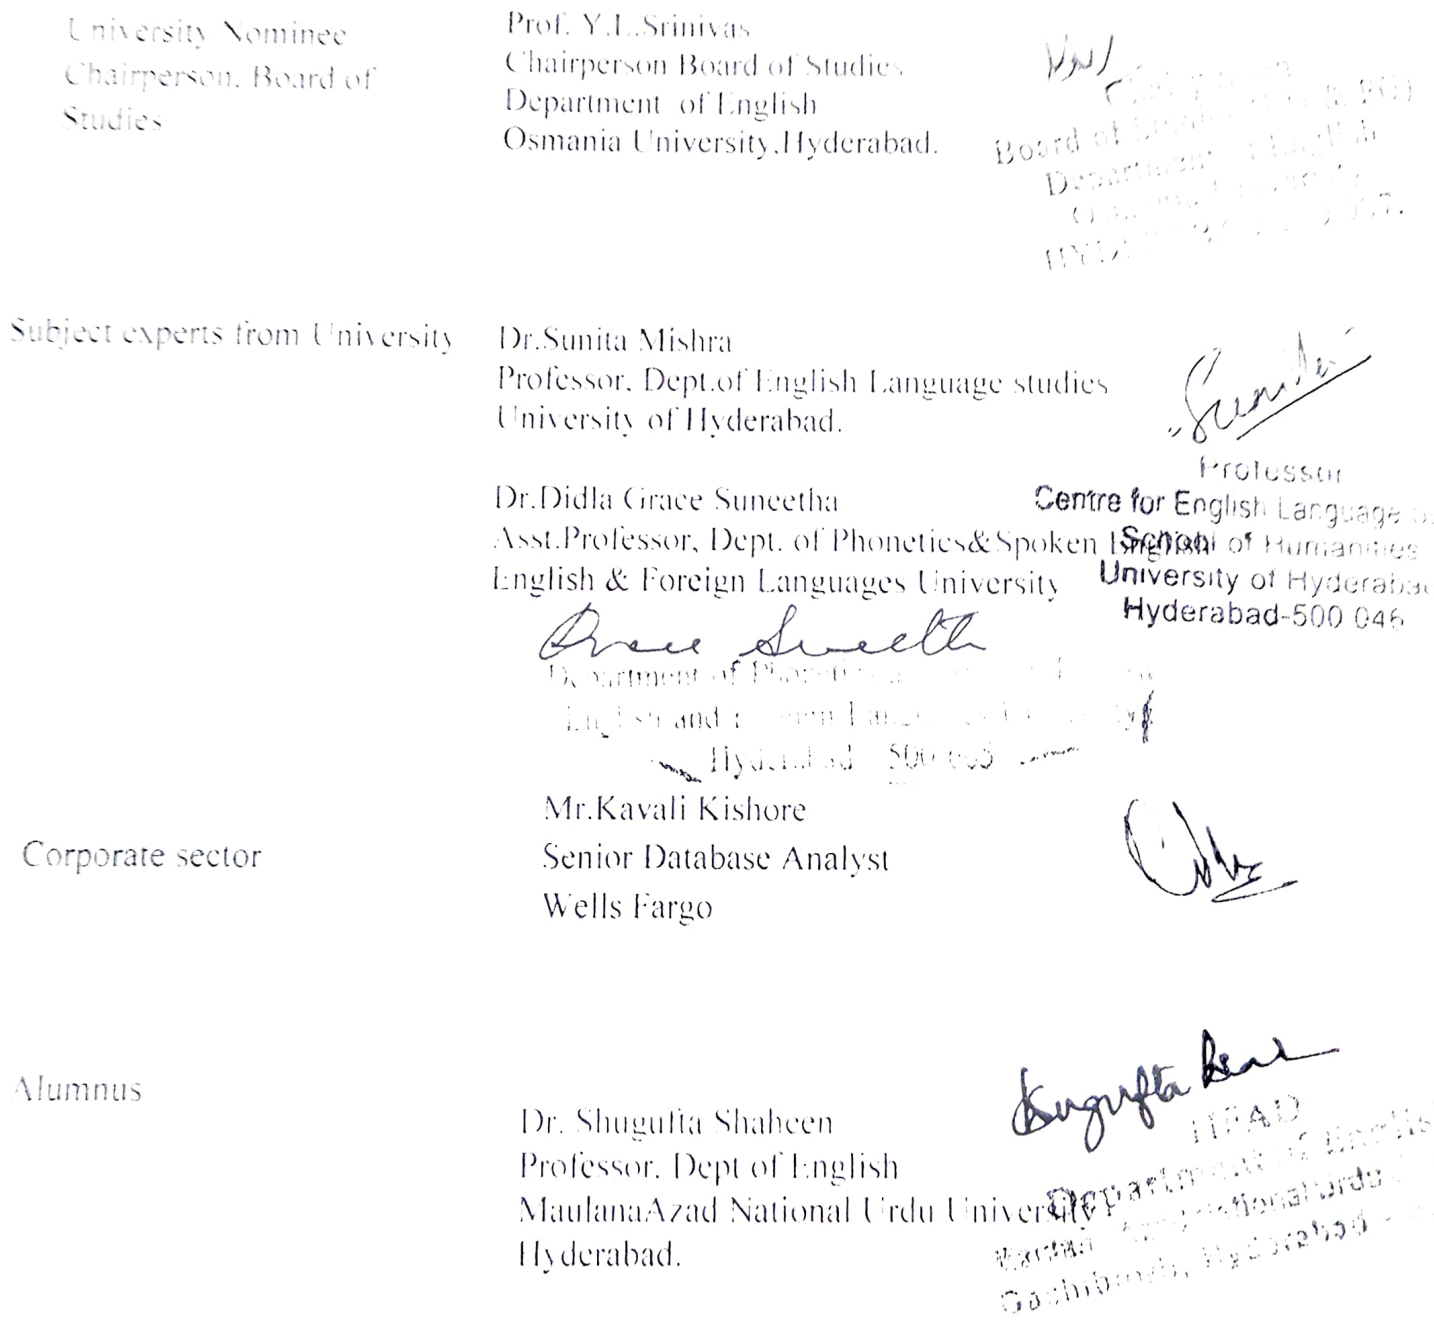 University Nominee
Chairperson, Board of
Studies
Prof. Y.L.Srinivas
Chairperson Board of Studies
Department of English
Osmania University,Hyderabad.
Board of
Department
Subject experts from University
Dr.Sunita Mishra
Professor, Dept.of English Language studies
University of Hyderabad.
Sunita
Professor
Centre for English Language
School of Humanities
University of Hyderabad
Hyderabad-500 046
Dr.Didla Grace Suneetha
Asst.Professor, Dept. of Phonetics&Spoken English
English & Foreign Languages University
Grace Suneetha
Department of
English and
Hyderabad 500
Corporate sector
Mr.Kavali Kishore
Senior Database Analyst
Wells Fargo
Alumnus
Dr. Shugufta Shaheen
Professor, Dept of English
MaulanaAzad National Urdu University
Hyderabad.
Shugufta
HEAD
Department of English
National Urdu
Gachibowli, Hyderabad